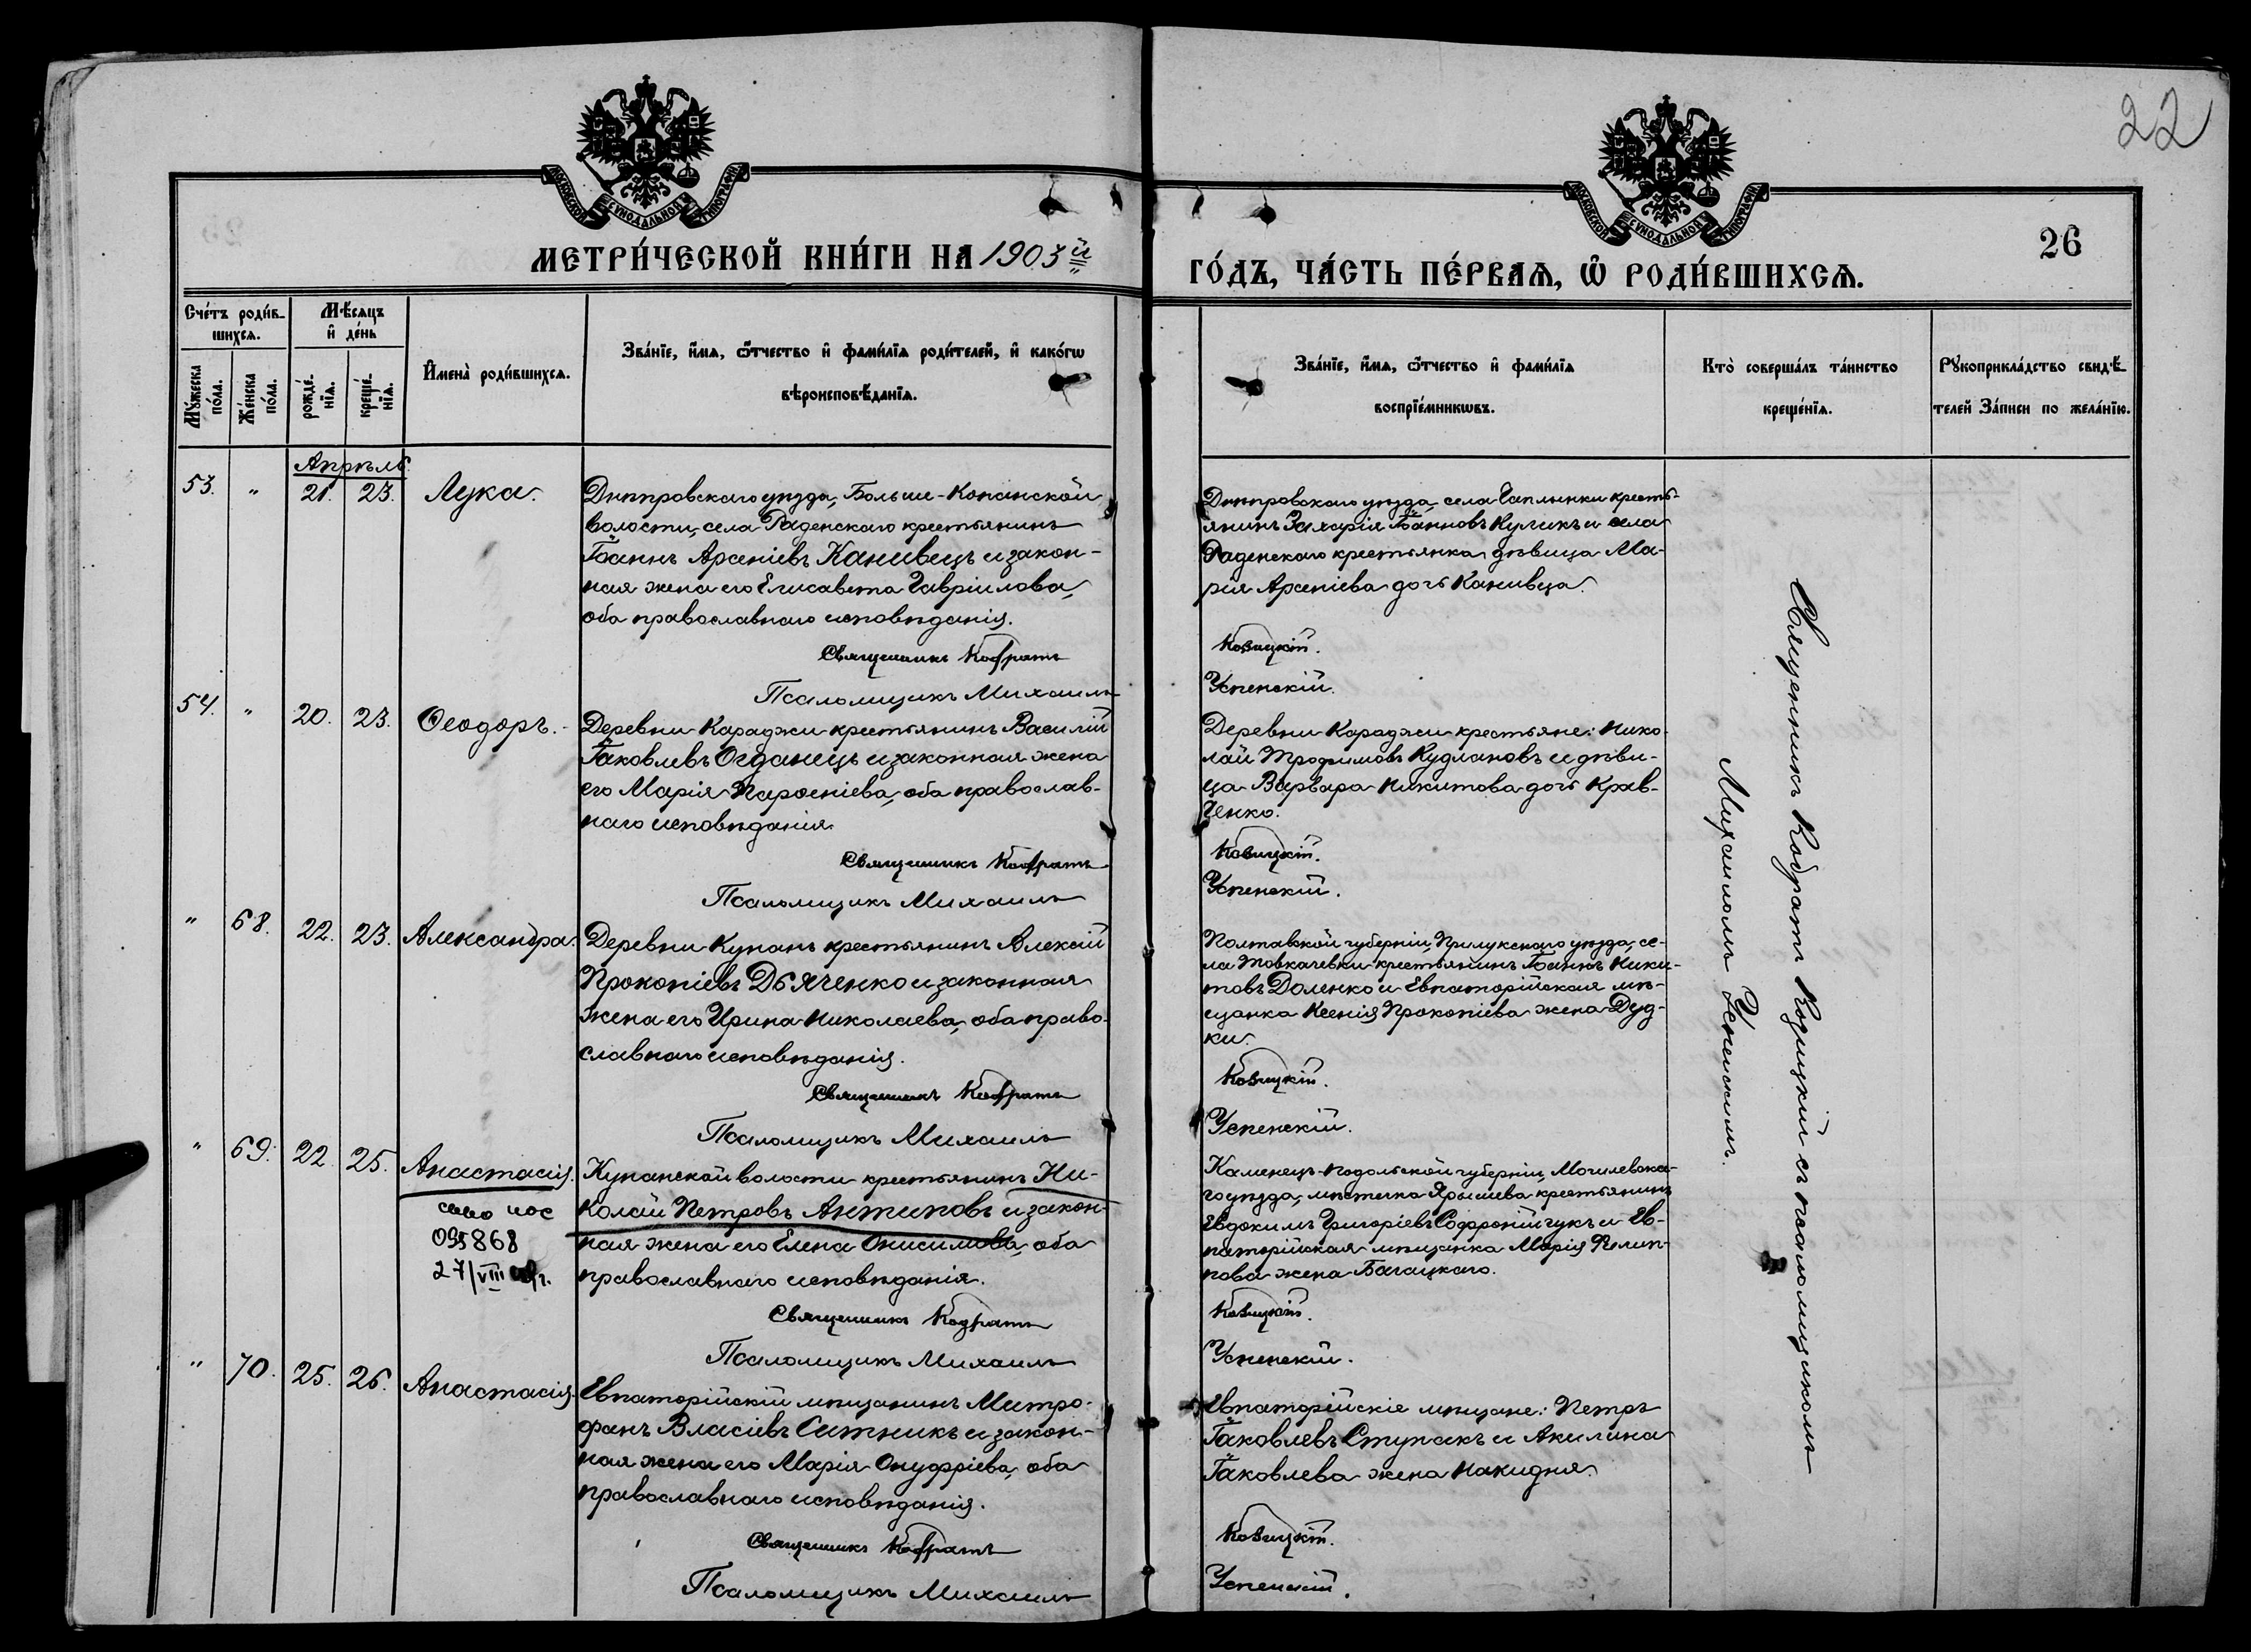 22
МОСКОВСКОЙ СУНОДАЛЬНОЙ ТИПОГРАФІИ
МОСКОВСКОЙ СУНОДАЛЬНОЙ ТИПОГРАФІИ
МЕТРИ́ЧЕСКОЙ КНИ́ГИ НА 1903й
ГО́ДЪ, ЧА́СТЬ ПЕ́РВАѦ, Ѿ РОДИ́ВШИХСѦ.
26
Сче́тъ роди́в-
шихсѧ.
Мѣ́сѧцъ
и҆ де́нь
Мꙋ́жеска
по́ла.
Же́нска
по́ла.
рожде́-
нїѧ.
креще́-
нїѧ.
И҆мена̀ роди́вшихсѧ.
Зва́нїе, и҆́мѧ, ѻ҆́тчество и҆ фами́лїѧ роди́телей, и҆ како́гѡ
вѣроисповѣ́данїѧ.
Зва́нїе, и҆́мѧ, ѻ҆́тчество и҆ фами́лїѧ
воспрїе́мникѡвъ.
Кто̀ соверша́лъ та́инство
креще́нїѧ.
Рꙋкоприкла́дство свидѣ́-
телей За́писи по жела́нїю.
Апрѣль
53. " 21. 23. Лука.
Днѣпровскаго уѣзда, Больше-Копанской
волости, села Раденскаго крестьянинъ
Іоаннъ Арсеніевъ Канивецъ и закон-
ная жена его Елисавета Гавріилова,
оба православнаго исповѣданія.
Священникъ Кодратъ
Псаломщикъ Михаилъ
Днѣпровскаго уѣзда, села Чаплынки кресть-
янинъ Захарія Іоанновъ Куликъ и села
Раденскаго крестьянка дѣвица Ма-
рія Арсеніева дочь Канивца.
Козицкій.
Успенскій.
54. " 20. 23. Ѳеодоръ.
Деревни Караджи крестьянинъ Василій
Іаковлевъ Огданецъ и законная жена
его Марія Парѳеніева, оба православ-
наго исповѣданія
Священникъ Кодратъ
Псаломщикъ Михаилъ
Деревни Караджи крестьяне: Нико-
лай Трофимовъ Кудлановъ и дѣви-
ца Варвара Никитова дочь Крав-
ченко.
Козицкій.
Успенскій.
" 68. 22. 23. Александра.
Деревни Кунанъ крестьянинъ Алексій
Прокопіевъ Дьяченко и законная
жена его Ирина Николаева, оба право-
славнаго исповѣданія.
Священникъ Кодратъ
Псаломщикъ Михаилъ
Полтавской губерніи, Прилукскаго уѣзда, се-
ла Товкачевки крестьянинъ Іоаннъ Ники-
товъ Доленко и Евпаторійская мѣ-
щанка Ксенія Прокопіева жена Дуд-
ки.
Козицкій.
Успенскій.
" 69. 22 25. Анастасія.
27/VIII
Кунанской волости крестьянинъ Ни-
колай Петровъ Антиповъ и закон-
ная жена его Елена Онисимова, оба
православнаго исповѣданія.
Священникъ Кодратъ
Псаломщикъ Михаилъ
Каменецъ-Подольской губерніи, Могилевска-
го уѣзда, мѣстечка Ярышева крестьянинъ
Евдокимъ Григоріевъ Софронійчукъ и Ев-
паторійская мѣщанка Марія Филип-
пова жена Багацкаго.
Козицкій.
Успенскій.
" 70. 25. 26. Анастасія.
Евпаторійскій мѣщанинъ Митро-
фанъ Власіевъ Ситникъ и закон-
ная жена его Марія Онуфріева, оба
православнаго исповѣданія.
Священникъ Кодратъ
Псаломщикъ Михаилъ
Евпаторійскіе мѣщане: Петръ
Іаковлевъ Ступакъ и Акилина
Іаковлева жена Накидня.
Козицкій.
Успенскій.
Священникъ Кодратъ Козицкій съ псаломщикомъ
Михаиломъ Успенскимъ.